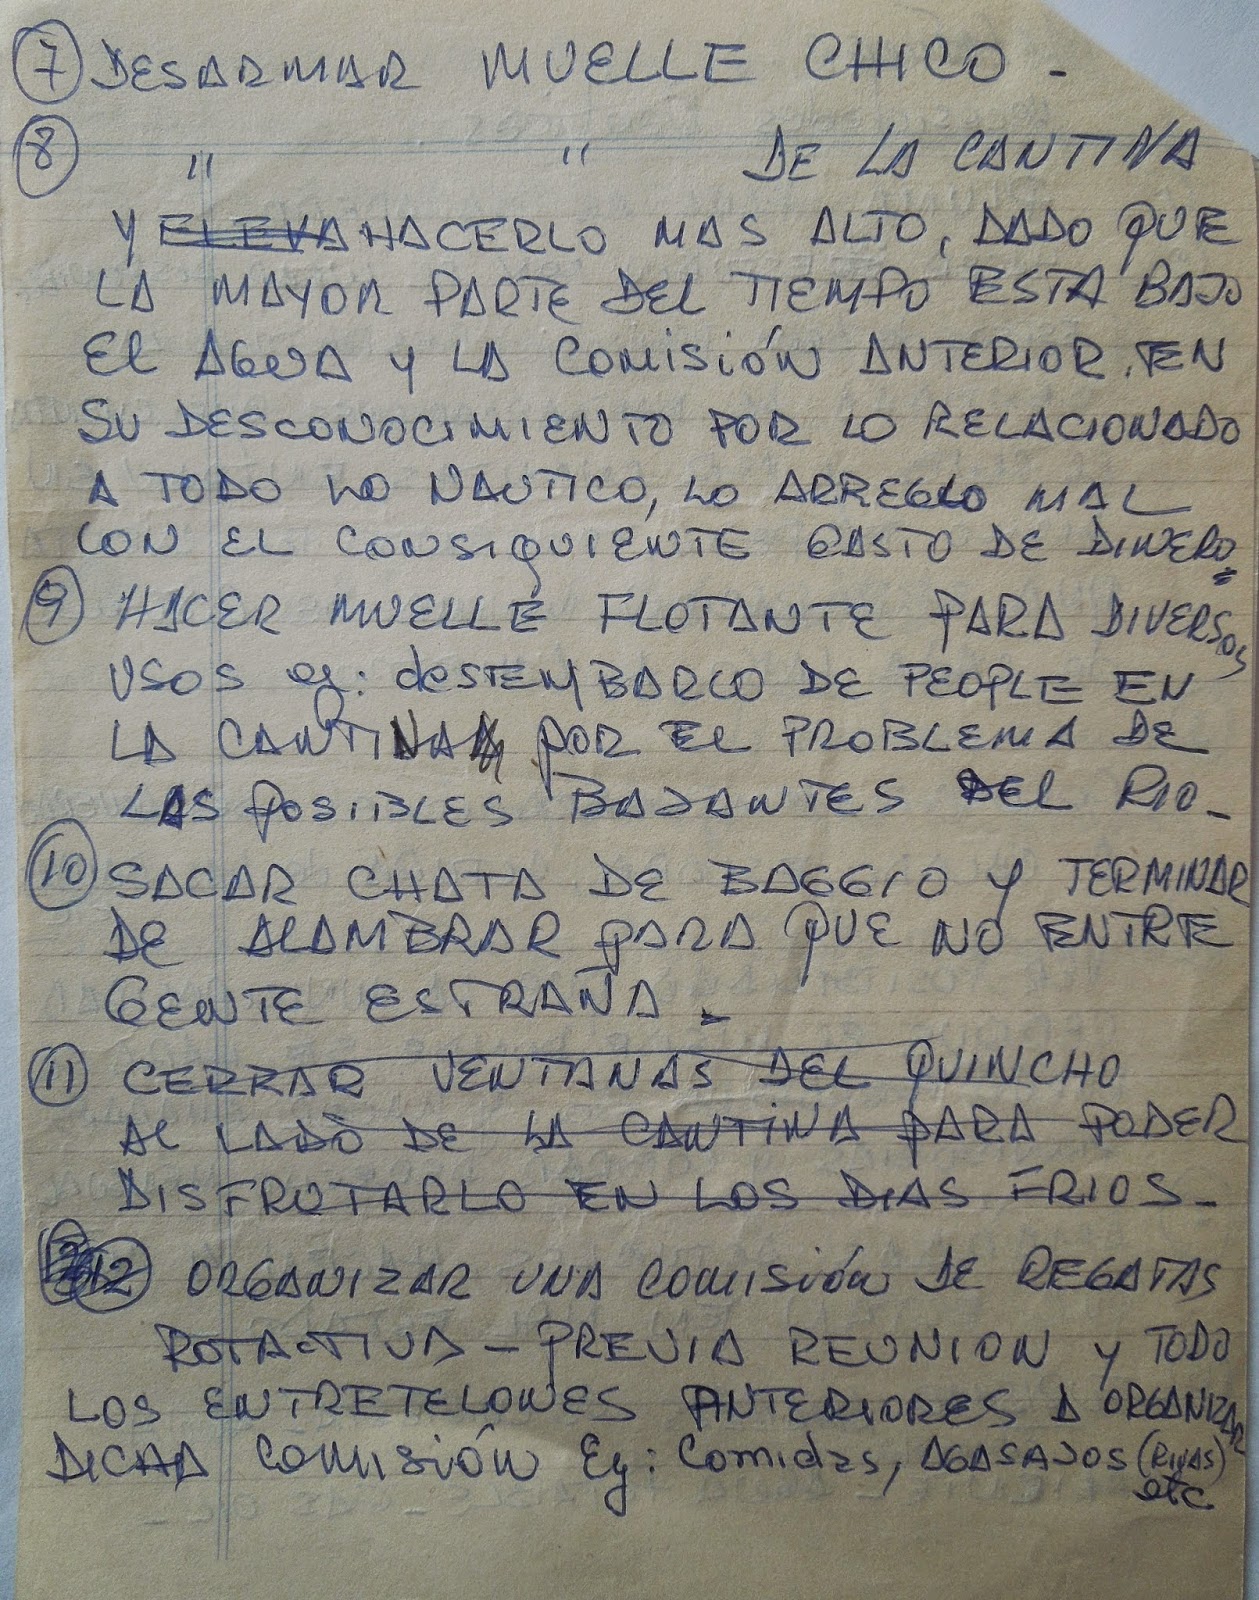 7 DESARMAR MUELLE CHICO -
8 " " DE LA CANTINA
Y ELEVA HACERLO MAS ALTO, DADO QUE
LA MAYOR PARTE DEL TIEMPO ESTA BAJO
El AGUA Y LA COMISIÓN ANTERIOR, EN
SU DESCONOCIMIENTO POR LO RELACIONADO
A TODO LO NAUTICO, LO ARREGLO MAL
CON EL CONSIQUIENTE GASTO DE DINERO=
9 HACER MUELLE FLOTANTE PARA DIVERSOS
USOS ej: desTEMBARCO DE PEOPLE EN
LA CANTINA POR EL PROBLEMA DE
LAS POSIIBLES BAJANTES DEL RIO -
10 SACAR CHATA DE BAGGIO Y TERMINAR
DE ALAMBRAR PARA QUE NO ENTRE
GENTE ESTRAÑA.
11 CERRAR VENTANAS DEL QUINCHO
Al LADO DE LA CANTINA PARA PODER
DISFRUTARLO EN LOS DIAS FRIOS -
12 ORGANIZAR UNA COMISIÓN DE REGATAS
ROTACTIVA - PREVIA REUNION Y TODO
LOS ENTRETELONES ANTERIORES A ORGANIZAR
DICHA COMISIÓN Ej: Comidas, AGASAJOS (RIFAS)
etc